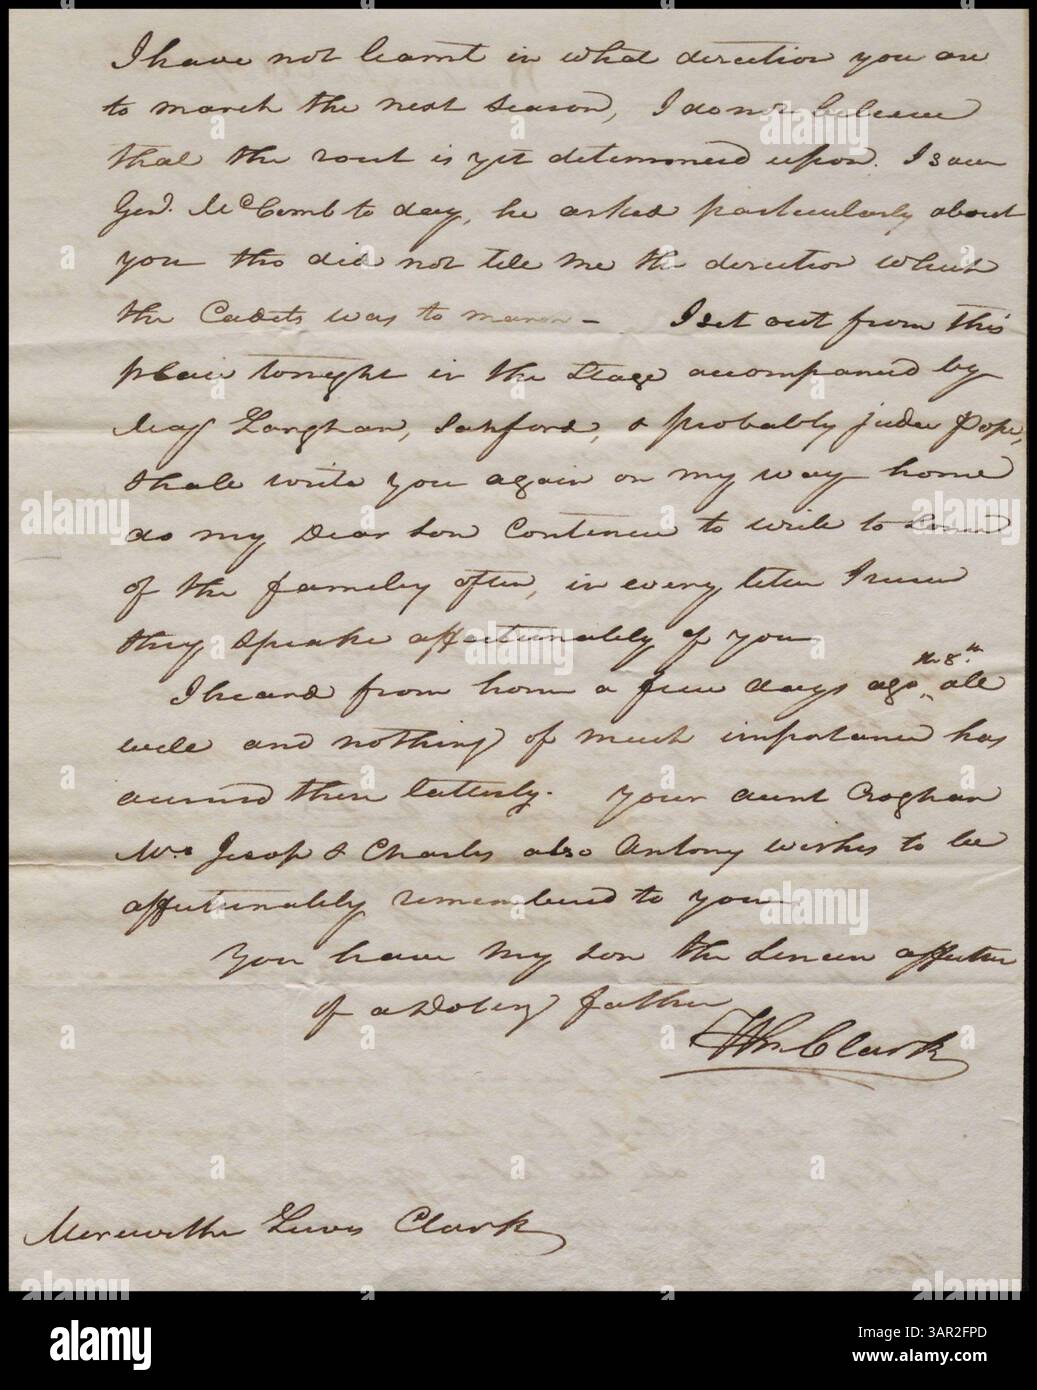 I have not learnt in what direction you are
to march the next season, I do not beleeve
that the rout is yet determoned upon. I saw
Genl. McComb to day, he asked particularly about
you tho did not tell me the direction which
the Cadets was to march – I set out from this
place tonight in the Stage accompanied by
Maj Langham, Sanford, & probably judge Pope,
Shall write you again on my way home
do my Dear Son Continue to write to Some
of the family often, in every letter I receive
they Speake affectunately of you
I heard from home a few days ago the 8th all
well and nothing of much importance has
accured there latterly. your aunt Croghan
Mrs Jesop & Charles also Antony wishes to be
affectunately remembered to you
You have my Son the Sincere affection
of a Doting father
Wm Clark
Meriwether Lewis Clark
alamy
Image ID: 3AR2FPD
www.alamy.com